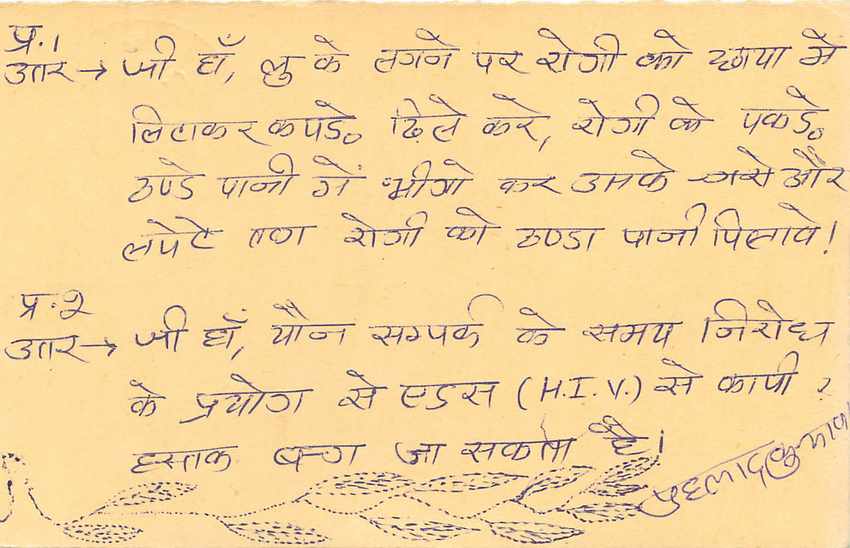 प्र.1
उतर → जी हाँ, लु के लगने पर रोगी को छाया में
लिटाकर कपडे॰ ढि़ले करे, रोगी के पकडे॰
ठण्डे पानी में भीगो कर उसके और
लपेटे तथा रोगी को ठण्डा पानी पिलावे!
प्र.२
उतर → जी हाँ, यौन सम्पर्क के समय निरोध
के प्रयोग से एडस (H.I.V.) से कापी
हसतक बचा जा सकता है!
प्रहलाद कुमार